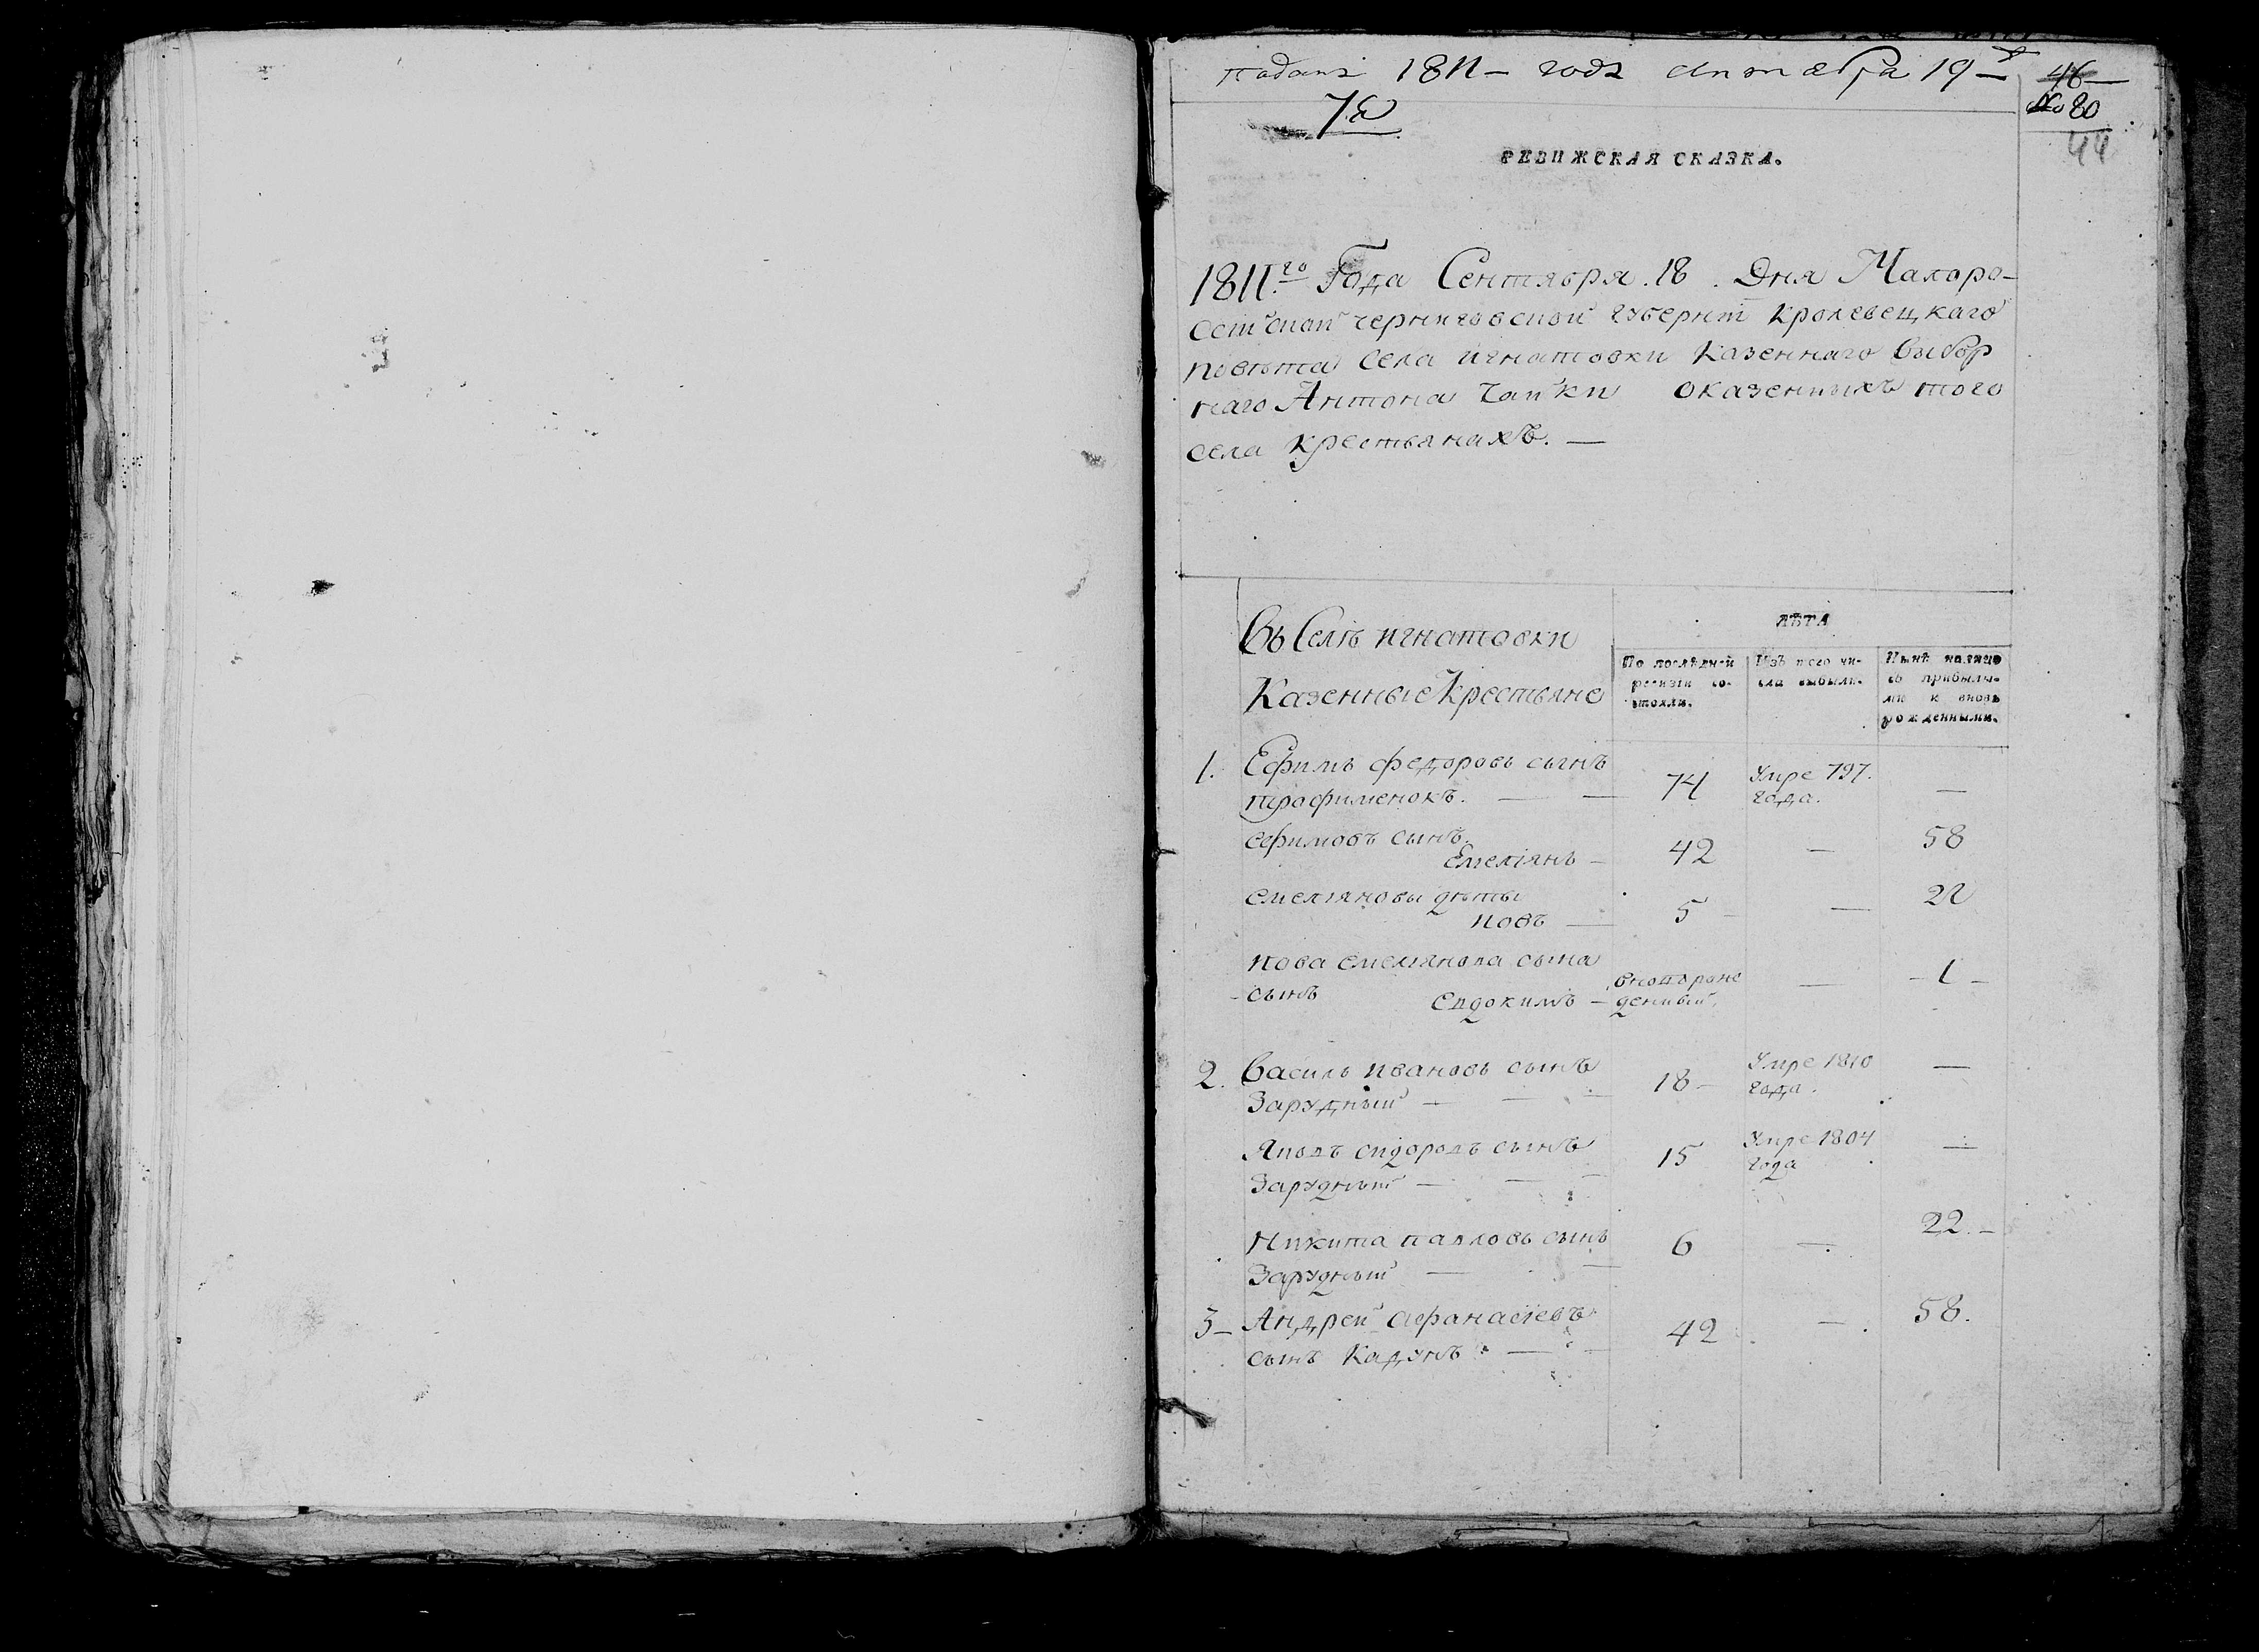 подана 1811 – года сентября 19 –
46 –
№ 80
44
РЕВИЖСКАЯ СКАЗКА.
1811.го Года Сентября. 18. Дня Малоро-
сейской черниговской губернїи Кролевецкаго
повѣта села игнатовки Казеннаго выбор
наго Антона чайки оказенныхъ того
села крестьянахъ. —
Въ Селѣ игнатовки
Казенные Крестьяне
ЛѢТА
По послѣдней ревизїи со- стояли.
Изъ того чи- сла выбыли.
Нынѣ налицо съ прибылы- ми и вновь рожденными.
1. Ефимъ федоровъ сынъ
трофименокъ. — — 74 Умре 797. года. —
ефимовъ сынъ
Емелїянъ – 42 — 58
емелїяновы дѣты
иовъ — 5 – — 21
иова емелїянова сына
сынъ Евдокимъ – вновъ рожденный — 1 –
2. Василь ивановъ сынъ
Зарудный — — — 18 – Умре 1810 года. —
Яковъ сидоровъ сынъ
Зарудный — — — 15 Умре 1804 года —
Никита павловъ сынъ
Зарудный — — 6 — 22. –
3 – Андрей афанасїевъ
сынъ Кадунъ — — 42 — 58.